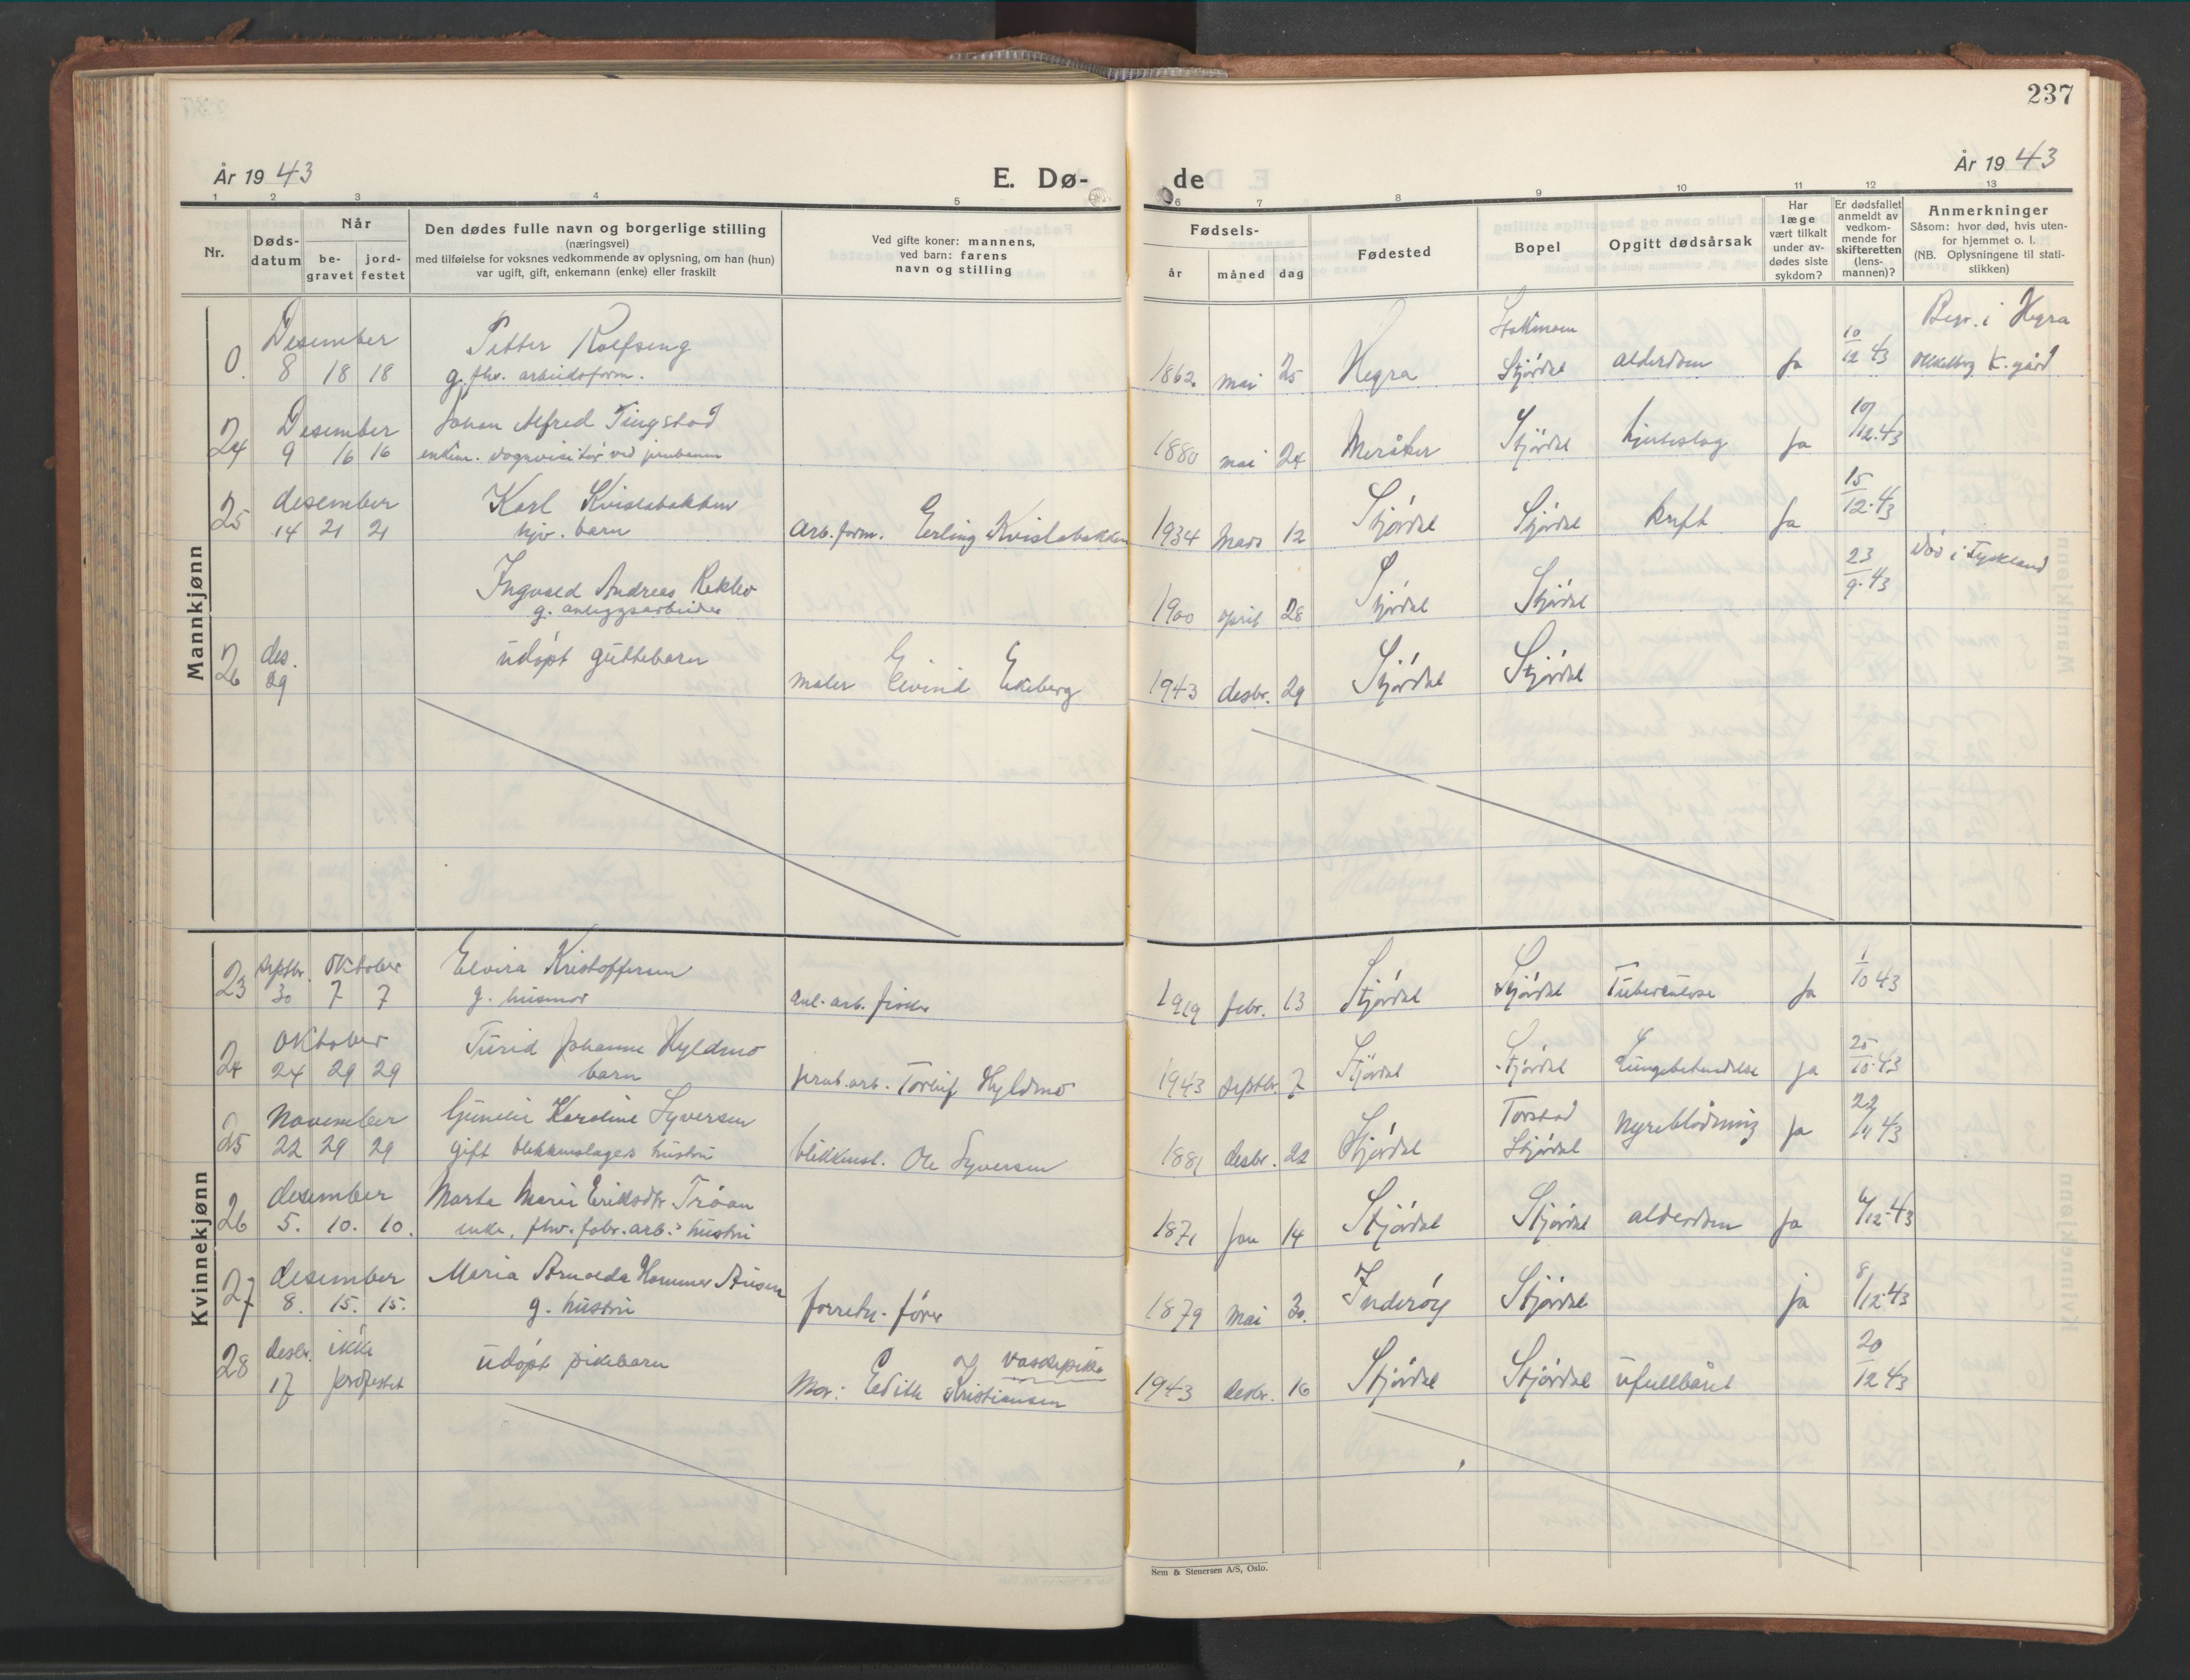 237
År 1943
E. Dø-
de
År 1943
1 2 3 4 5 6 7 8 9 10 11 12 13
Nr.
Døds-
datum
Når
be-
gravet
jord-
festet
Den dødes fulle navn og borgerlige stilling
(næringsvei)
med tilføielse for voksnes vedkommende av oplysning, om han (hun)
var ugift, gift, enkemann (enke) eller fraskilt
Ved gifte koner: mannens,
ved barn: farens
navn og stilling
Fødsels-
år måned dag
Fødested
Bopel
Opgitt dødsårsak
Har
læge
vært tilkalt
under av-
dødes siste
sykdom?
Er dødsfallet
anmeldt av
vedkom-
mende for
skifteretten
(lens-
mannen)?
Anmerkninger
Såsom: hvor død, hvis uten-
for hjemmet o. l.
(NB. Oplysningene til stati-
stikken)
Mannkjønn
Desember Petter Rolfseng Begr. i Hegra
0. 8 18 18 g. fhv. arbeidsform. 1862 mai 25 Hegra Stjørdal alderdom Ja 10/12 43 K.gård
Desember Johan Alfred Tingstad
24 9 16 16 enkem. vognvisitør ved jernbanen 1880 mai 24 Meråker Stjørdal hjerteslag Ja 10/12.43
desember Karl Kvislabakken
25 14 21 21 hjv. barn Arb.form. Erling Kvislabakken 1934 Mars 12 Stjørdal Stjørdal Ja 15/12.43
Ingvald Andreas Reklev død i Tyskland
g. anleggsarbeider 1900 april 28 Stjørdal Stjørdal 23/9.43
26 des. udøpt guttebarn
29 maler Eivind Ekeberg 1943 desbr. 29 Stjørdal Stjørdal
Kvinnekjønn
septbr. oktober Elvira Kristoffersen
23 30 7 7 g. husmor anl.arb. 1919 febr. 13 Stjørdal Stjørdal Tuberculose Ja 1/10 43
oktober Turid Johanne Hyldmo
24 24 29 29 barn Hyldmo 1943 septbr. 7 Stjørdal Stjørdal Ja 25/10.43
November Gunelie Karoline Syversen Torstad
25 22 29 29 gift blikkenslagers hustru blikkensl. Ole Syversen 1881 desbr. 22 Stjørdal Stjørdal Nyreblødning Ja 22/11 43
desember Marta Marie Eriksdtr Trøan
26 5. 10. 10. enke, fhv. fabr.arb.s hustru 1871 Jan 14 Stjørdal Stjørdal alderdom Ja 6/12.43
desember Maria Arnolda Hammer
27 8. 15. 15. g. hustru forretn. fører 1879 Mai 30. Inderøy Stjørdal ja 8/12.43
28 desbr. ikke udøpt pikebarn vaskepike
17 jordfestet Mor: Edith Kristiansen 1943 desbr. 16 Stjørdal Stjørdal ufullbåret 20/12 43
Sem & Stenersen A/S, Oslo.